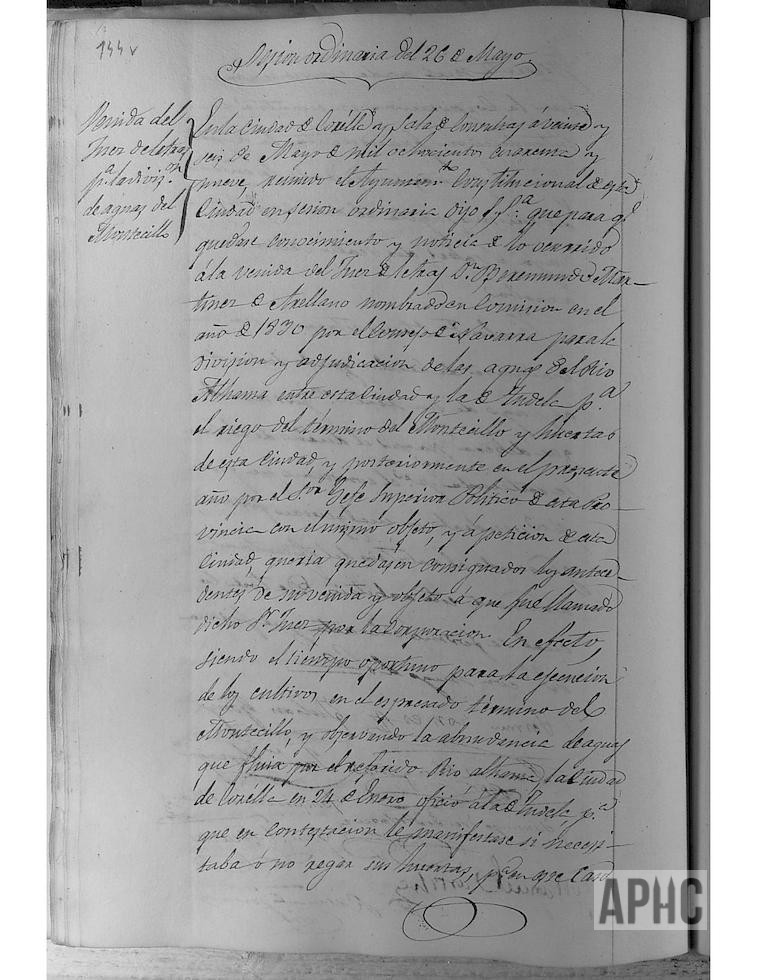 144v
Sesion ordinaria del 26 de Mayo.
Venida del
Juez de letras
pª la divisⁿ.
de aguas del
Montecillo
En la Ciudad de Corella y Sala de Consultas á veinte y
seis de Mayo de mil ochocientos cuarenta y
nueve, reunido el Ayuntamtº Constitucional de esta
Ciudad en sesion ordinaria dijo S. Sª. que para qe
quedase conocimiento y noticia de lo ocurrido
á la venida del Juez de letras Dn. Beremundo Mar-
tinez de Arellano nombrado en Comision en el
año de 1830 por el Consejo de Navarra para la
division y adjudicacion de las aguas del Rio
Alhama entre esta Ciudad y la de Tudela pª.
el riego del término del Montecillo y huertas
de esta Ciudad, y posteriormente en el presente
año por el Sor Gefe Superior Politico de esta Pro-
vincia con el mismo objeto, y a peticion de esta
Ciudad queria quedasen consignados los antece-
dentes de su venida y objeto a que fue llamado
dicho Sr. Juez por la Corporacion. En efecto,
siendo el tiempo oportuno para la ejecucion
de los cultivos en el espresado término del
Montecillo, y observando la abundancia de aguas
que fluia por el referido Rio alhama la Ciudad
de Corella en 24 de Enero ofició á la de Tudela, pª
que en contestacion le manifestase si necesi-
taba ó no regar sus huertas, que
APHC